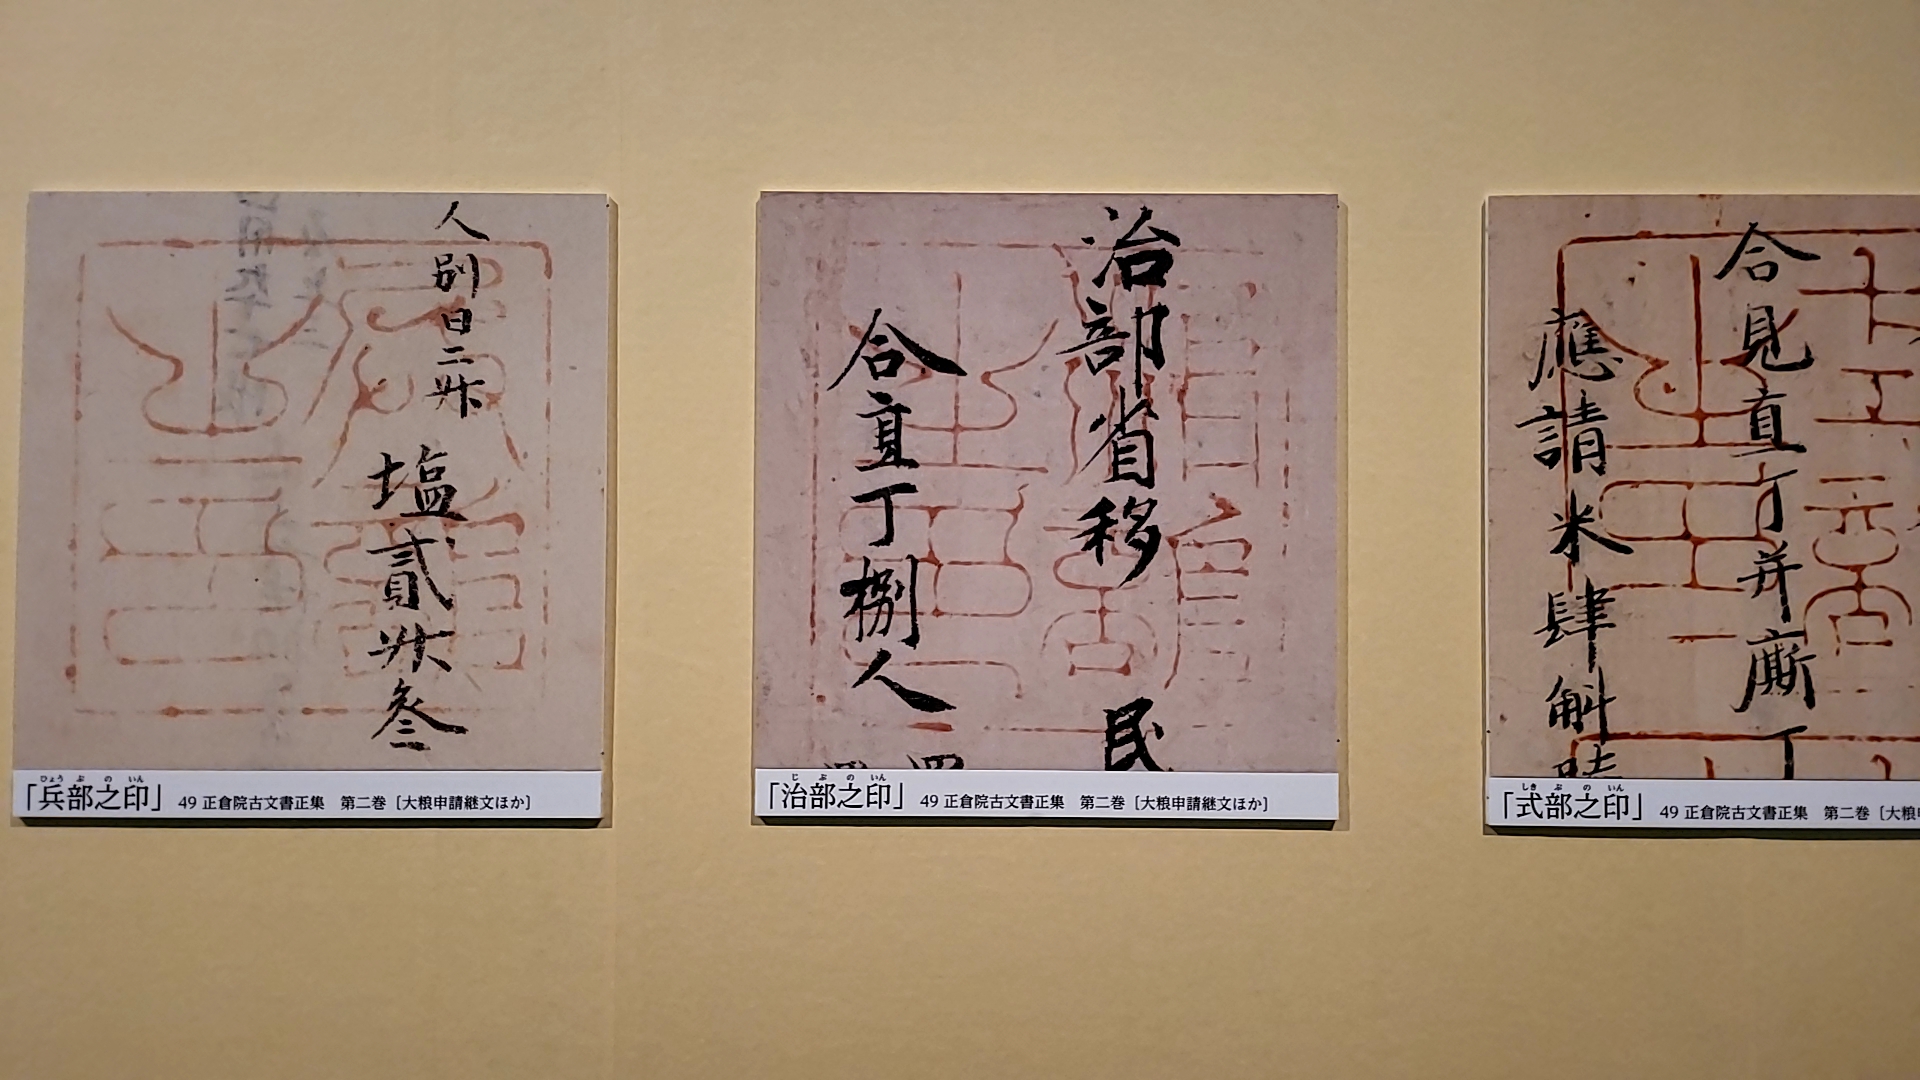 人別日二升
塩貳升叄
「兵部之印」 49 正倉院古文書正集 第二巻［大粮申請継文ほか］
ひょうぶのいん
治部省移 民
合直丁捌人
「治部之印」 49 正倉院古文書正集 第二巻［大粮申請継文ほか］
じぶのいん
合見直丁并廝丁
應請米肆斛
「式部之印」 49 正倉院古文書正集 第二巻［大粮
しきぶのいん